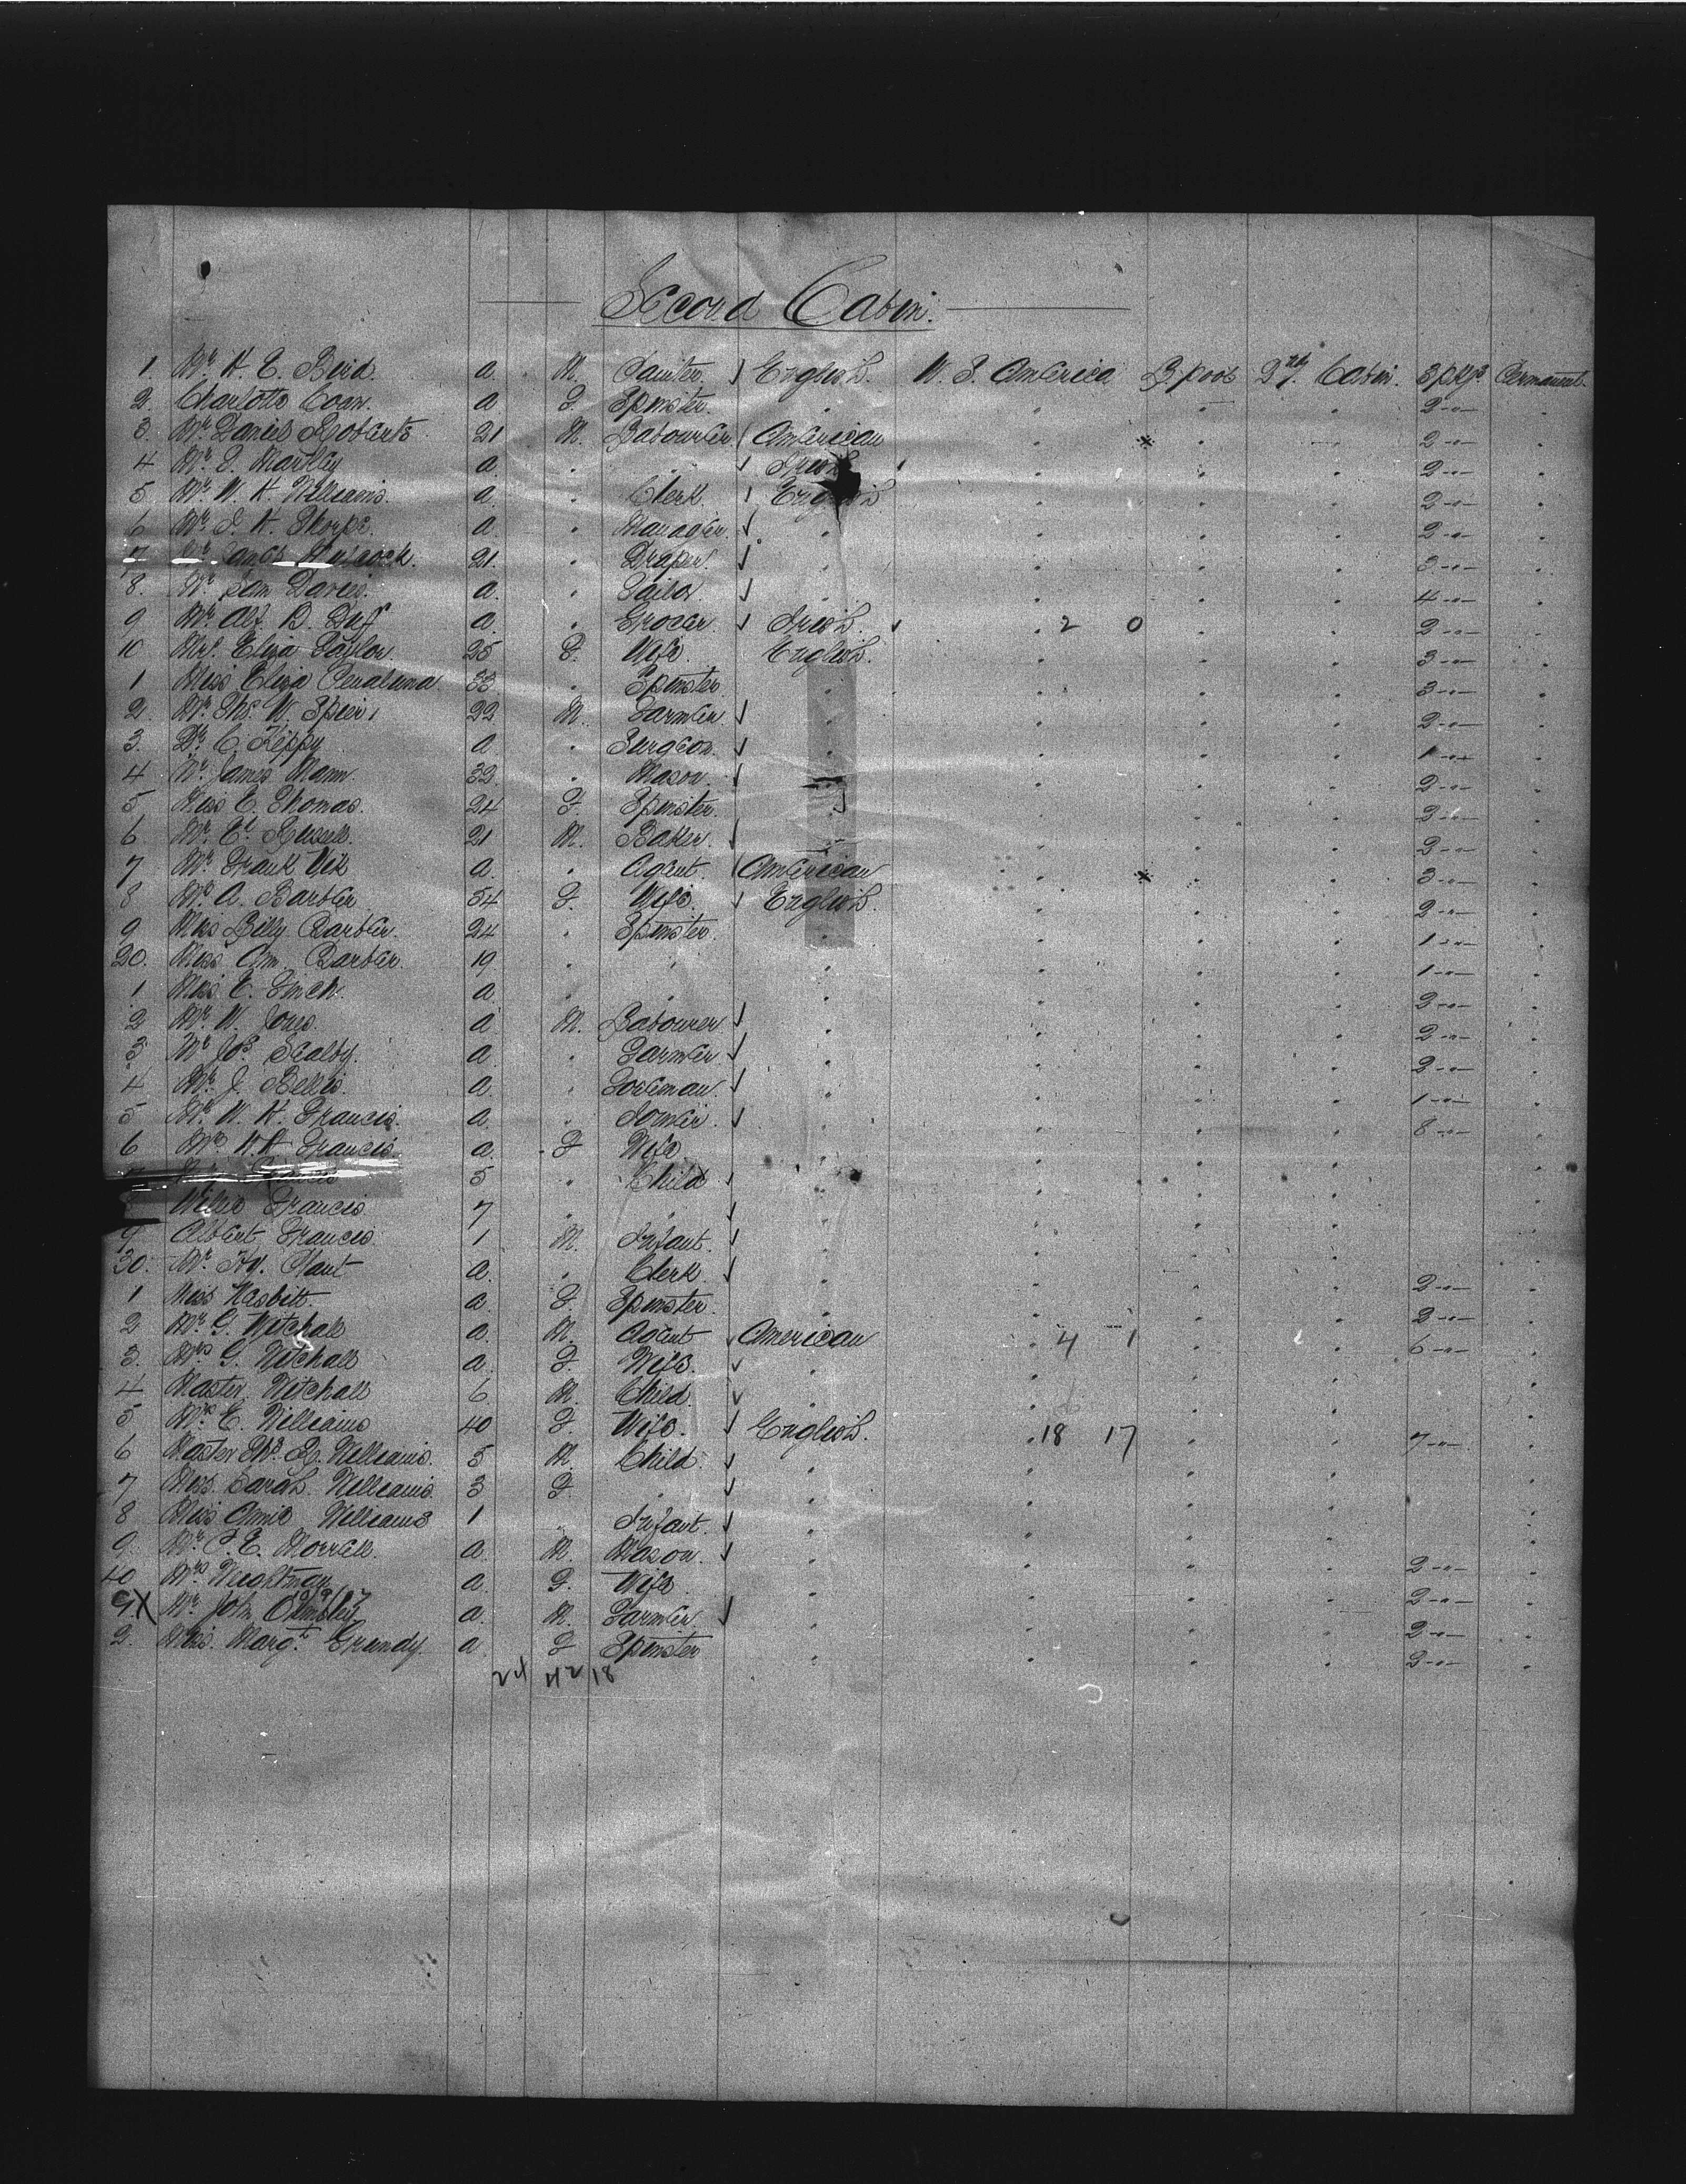 Second Cabin.
1 Mr. H. E. Bird. a. M. Painter English. U. S. America L.pool 2nd. Cabin. 3 pkgs Permanent.
2. Charlotte Coan. a F. Spinster. " " " " 2 -"- "
3. Mr. Daniel Roberts 21 M. Labourer American " " " " 2 -"- "
4 Mr. J. a. " " Irish " " " " 2 -"- "
5. Mr. W. H. Williams. a. " Clerk English " " " " 2 -"- "
6 Mr. J. H. Thorpe. a. " Manager " " " " " 2 -"- "
7 James 21. " Draper. " " " " " 3 -"- "
8. Mr. Sam Davies. a. " Tailor. " " " " " 4 -"- "
9 Mr. Alf. D. Duff a. " Grocer. Irish. " 2 0 " " " 2 -"- "
10 Mrs. Eliza Taylor. 25 F. Wife. English. " " " " 3 -"- "
1 Miss Eliza 33 " Spinster " " " " " 3 -"- "
2. Mr. Ths. W. Speer 22 M. Farmer " " " " " 2 -"- "
3. Dr. C. a " Surgeon. " " " " " 1 -"- "
4 Mr. James Mann. 32 " Mason. " " " " 2 -"- "
5 Miss E. Thomas. 24 F. Spinster. " " " " 2 -"- "
6. Mr. Russell. 21 M. Baker. " " " " 2 -"- "
7 Mr. Frank a. " Agent. American " " " " 3 -"- "
8 Mrs A. Barber 54 F. Wife. English. " " " " 2 -"- "
9 Miss Lilly Barber. 24 " Spinster. " " " " " 1 -"- "
20. Miss Am. Barber. 19 " " " " " " " 1 -"- "
1 Miss E. Finch. a " " " " " " " 2 -"- "
2 Mr. W. Jones. a M. Labourer " " " " " 2 -"- "
3 Mr. Jos. Scalby. a " Farmer " " " " " 2 -"- "
4 Mr. J. Bellis. a. " Foreman. " " " " " 1 -"- "
5 Mr. W. H. Francis. a. " " " " " " 8 -"- "
6 Mrs W. H. Francis. a. F Wife " " " " " "
7 Francis 5 " Child " " " " " "
Willie Francis 7 " " " " " " " "
9 Albert Francis 1 M. Infant. " " " " " "
30. Mr. Hy. Plant a. " Clerk. " " " " " 2 -"- "
1 Miss Nesbitt. a F. Spinster. " " " " " 2 -"- "
2 Mr. G. Witchall a. M. Agent American " 4 1 " " " 6 -"- "
3. Mrs G. Witchall a. F. Wife. " " " " " "
4 Master Witchall 6 M. Child. " " " " " "
5 Mrs E. Williams 40 F. Wife. English. " 18 17 " " " 7 -"- "
6 Master Williams. 5 M. Child. " " " " " "
7 Miss Sarah Williams. 3 F. " " " " " " "
8 Miss Annie Williams 1 " Infant. " " " " " "
9. Mr. E. Morrell. a. M. Mason. " " " " " 2 -"- "
40 Mrs Wrightman a F. Wife " " " " " 2 -"- "
X Mr. John a. M. Farmer " " " " " 2 -"- "
2. Miss. Margt. Grundy. a F Spinster " " " " " 3 -"- "
24 42 18